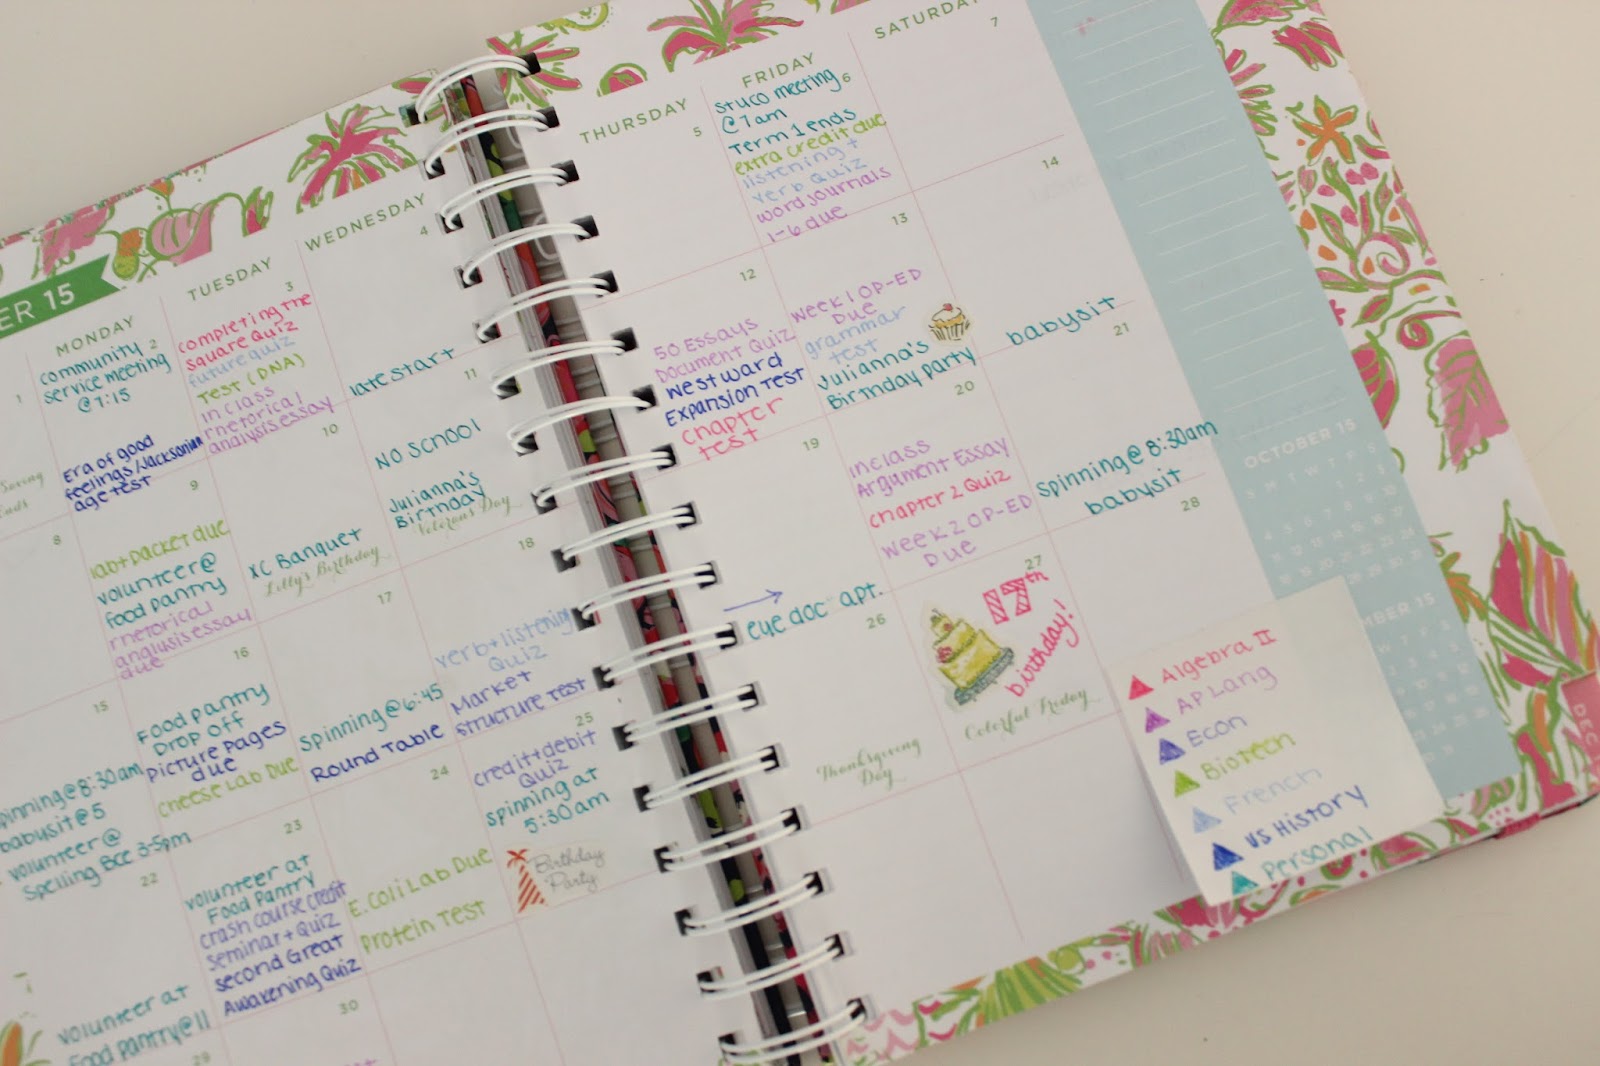 ER 15
MONDAY
TUESDAY
WEDNESDAY
THURSDAY
FRIDAY
SATURDAY
1
2
community
service meeting
@7:15
Era of good
feelings/Jacksonian
age test
3
completing the
square Quiz
future quiz
Test (DNA)
in class
rhetorical
analysis essay
4
late start
5
6
stuco meeting
@7am
Term 1 ends
extra credit due
listening +
verb Quiz
word journals
1-6 due
7
Saving
Ends
8
9
lab+packet due
volunteer@
food pantry
rhetorical
analysis essay
due
10
XC Banquet
Lilly's Birthday
11
NO SCHOOL
Julianna's
Birthday
Veterans Day
12
50 Essays
Document Quiz
westward
Expansion Test
chapter
test
13
week 1 OP-ED
Due
grammar
test
Julianna's
Birthday party
14
babysit
15
spinning@8:30am
babysit@5
volunteer@
Spelling Bee 3-5pm
16
Food pantry
Drop off
picture pages
due
cheese Lab Due
17
spinning@6:45
Round Table
18
verb+listening
Quiz
Market
structure test
19
eye doc apt.
20
inclass
Argument Essay
chapter 2 Quiz
week 2 OP-ED
Due
21
spinning@8:30am
babysit
22
volunteer at
Food pantry@11
23
volunteer at
Food Pantry
crash course credit
seminar+Quiz
second Great
Awakening Quiz
24
E.coli Lab Due
protein Test
25
credit+debit
Quiz
spinning at
5:30am
Birthday
Party
26
Thanksgiving
Day
27
17th
birthday!
Colorful Friday
28
29
30
OCTOBER 15
S M T W T F S
MBER 15
DEC
Algebra II
AP Lang
Econ
Biotech
French
US History
Personal